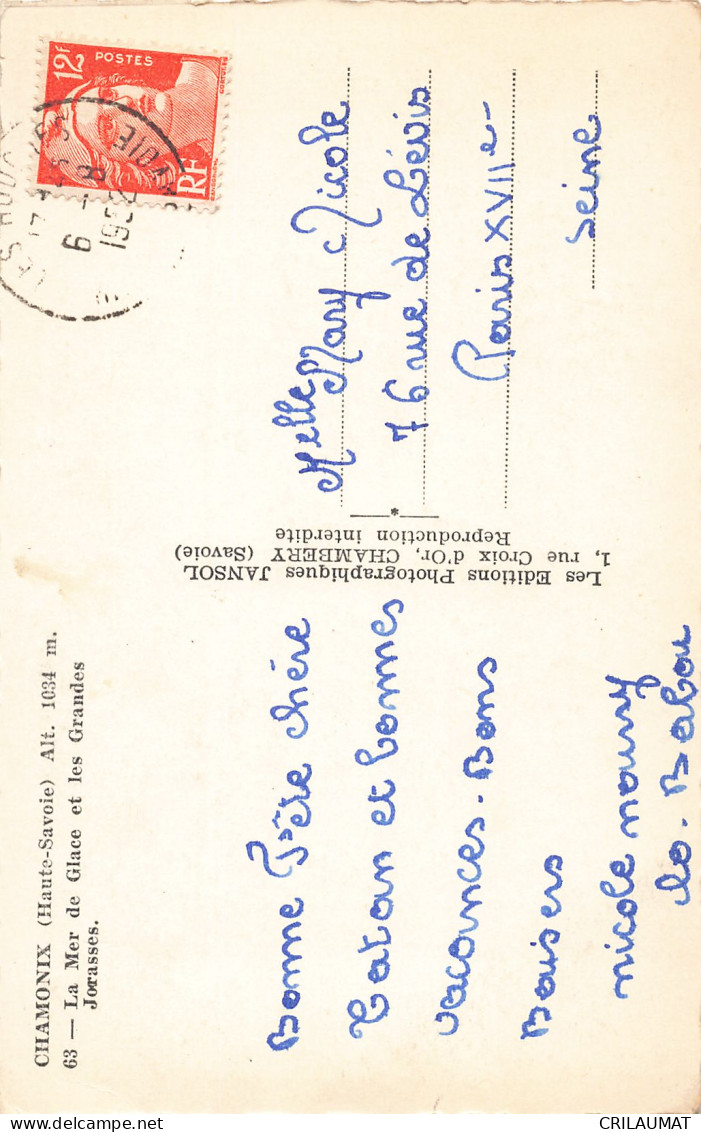 CHAMONIX (Haute-Savoie) Alt. 1034 m.
63 — La Mer de Glace et les Grandes
Jorasses.
Bonne Fête chère
tatan et bonnes
vacances. Bons
Baisers
nicole
lo. Babou
Les Editions Photographiques JANSOL
1, rue Croix d'Or, CHAMBERY (Savoie)
Reproduction interdite
*
Melle Mary Nicole
76 rue de Lévis
Paris XVIIe
Seine
12F
POSTES
RF
6 - 8
1952
CRILAUMAT